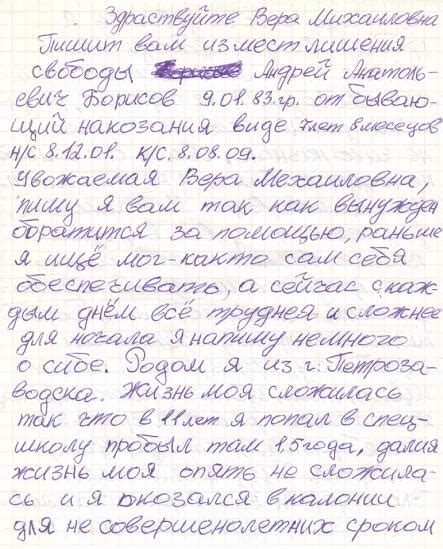 Здраствуйте Вера Михаиловна
Пишит вам из мест лишения
свободы Андрей Анатоль-
евич Борисов 9.01.83.гр. отбываю-
щий накозания виде 7лет 8месецов
н/с 8.12.01. к/с. 8.08.09.
Увожаемая Вера Мехаиловна,
пишу я вам так как вынужден
обратится за помощью, раньше
я ищё мог-както сам себя
обеспечивать, а сейчас с каж
дым днём всё труднея и сложнее
для ночала я напишу немного
о сибе. Родом я из г. Петроза-
водска. Жизнь моя сложилась
так что в 11 лет я попал в спец-
школу пробыл там 1,5 года, далия
жизнь моя опять не сложила-
сь и я окозался в калонии
для не совершенолетних сроком